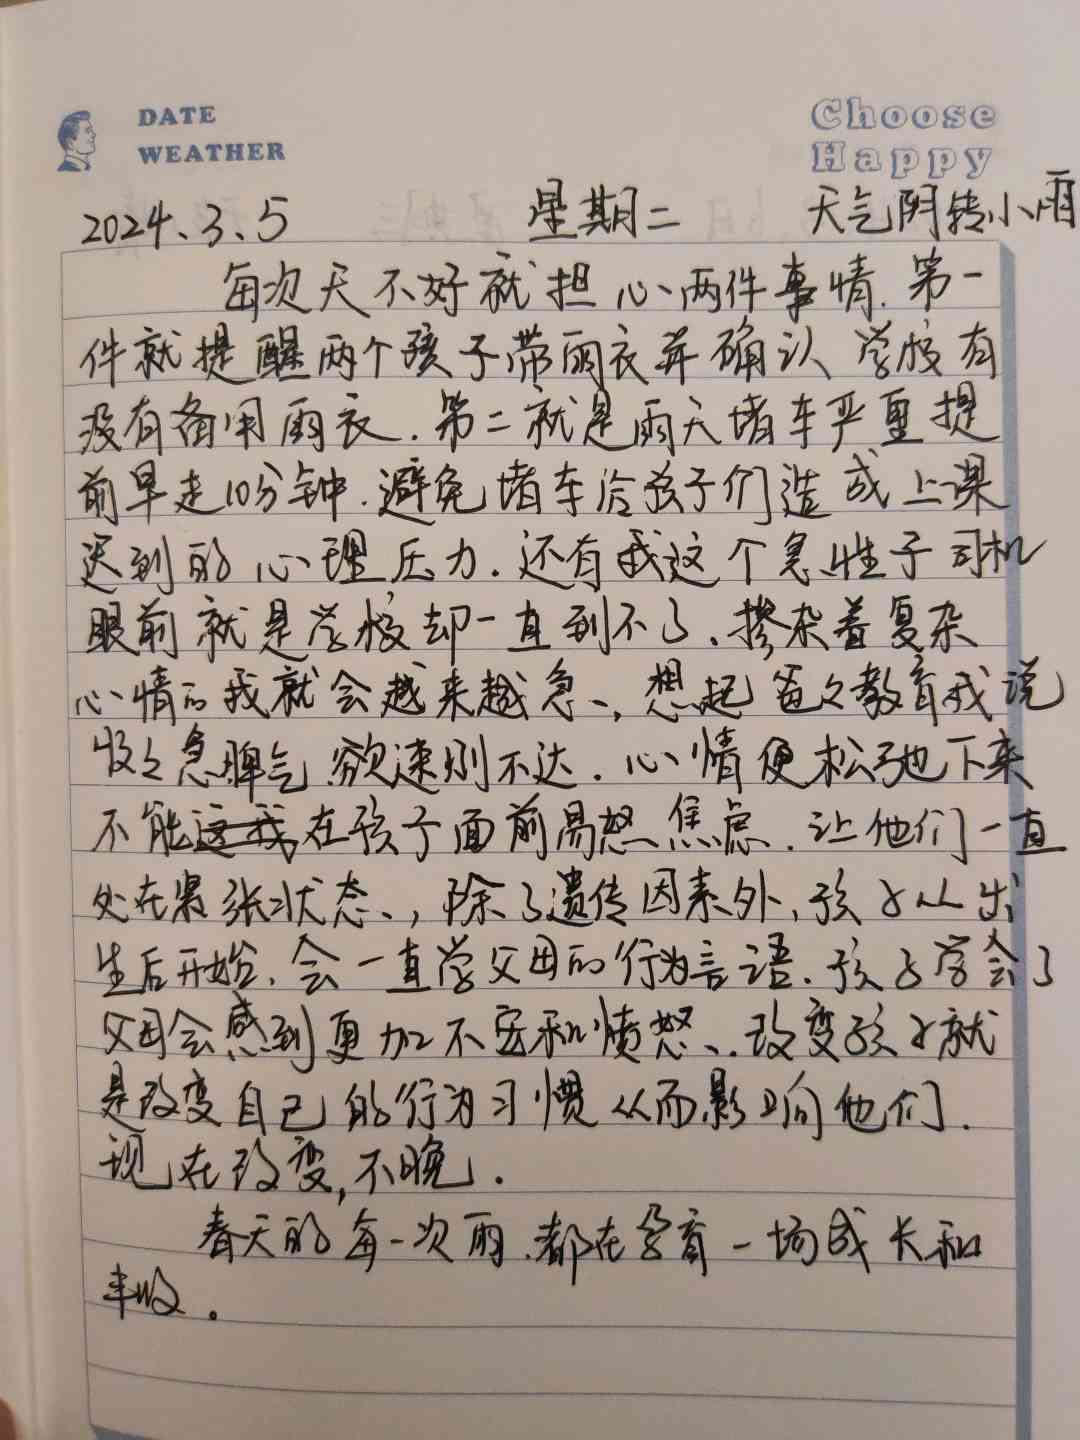 DATE
WEATHER
Choose
Happy
2024.3.5 星期二 天气阴转小雨
每次天不好就担心两件事情.第一
件就提醒两个孩子带雨衣并确认学校有
没有备用雨衣.第二就是雨天堵车严重提
前早走10分钟.避免堵车给孩子们造成上课
迟到的心理压力.还有我这个急性子司机
眼前就是学校却一直到不了、掺杂着复杂
心情的我就会越来越急、,想起爸爸教育我说
收收急脾气.欲速则不达.心情便松弛下来
不能在孩子面前易怒焦虑.让他们一直
处在紧张状态、,除了遗传因素外,孩子从出
生后开始,会一直学父母的行为言语.孩子学会了
父母会感到更加不安和愤怒、.改变孩子就
是改变自己的行为习惯从而影响他们.
现在改变,不晚.
春天的每一次雨.都在孕育一场成长和
丰收.